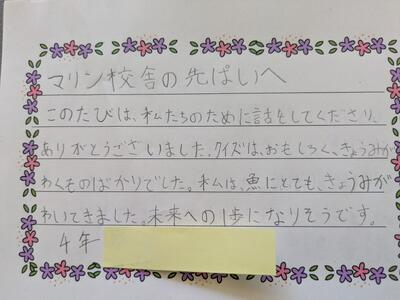 マリン校舎の先ぱいへ
このたびは、私たちのために話をしてくださり、
ありがとうございました。クイズは、おもしろく、きょうみが
わくものばかりでした。私は、魚にとても、きょうみが
わいてきました。未来への1歩になりそうです。
4年